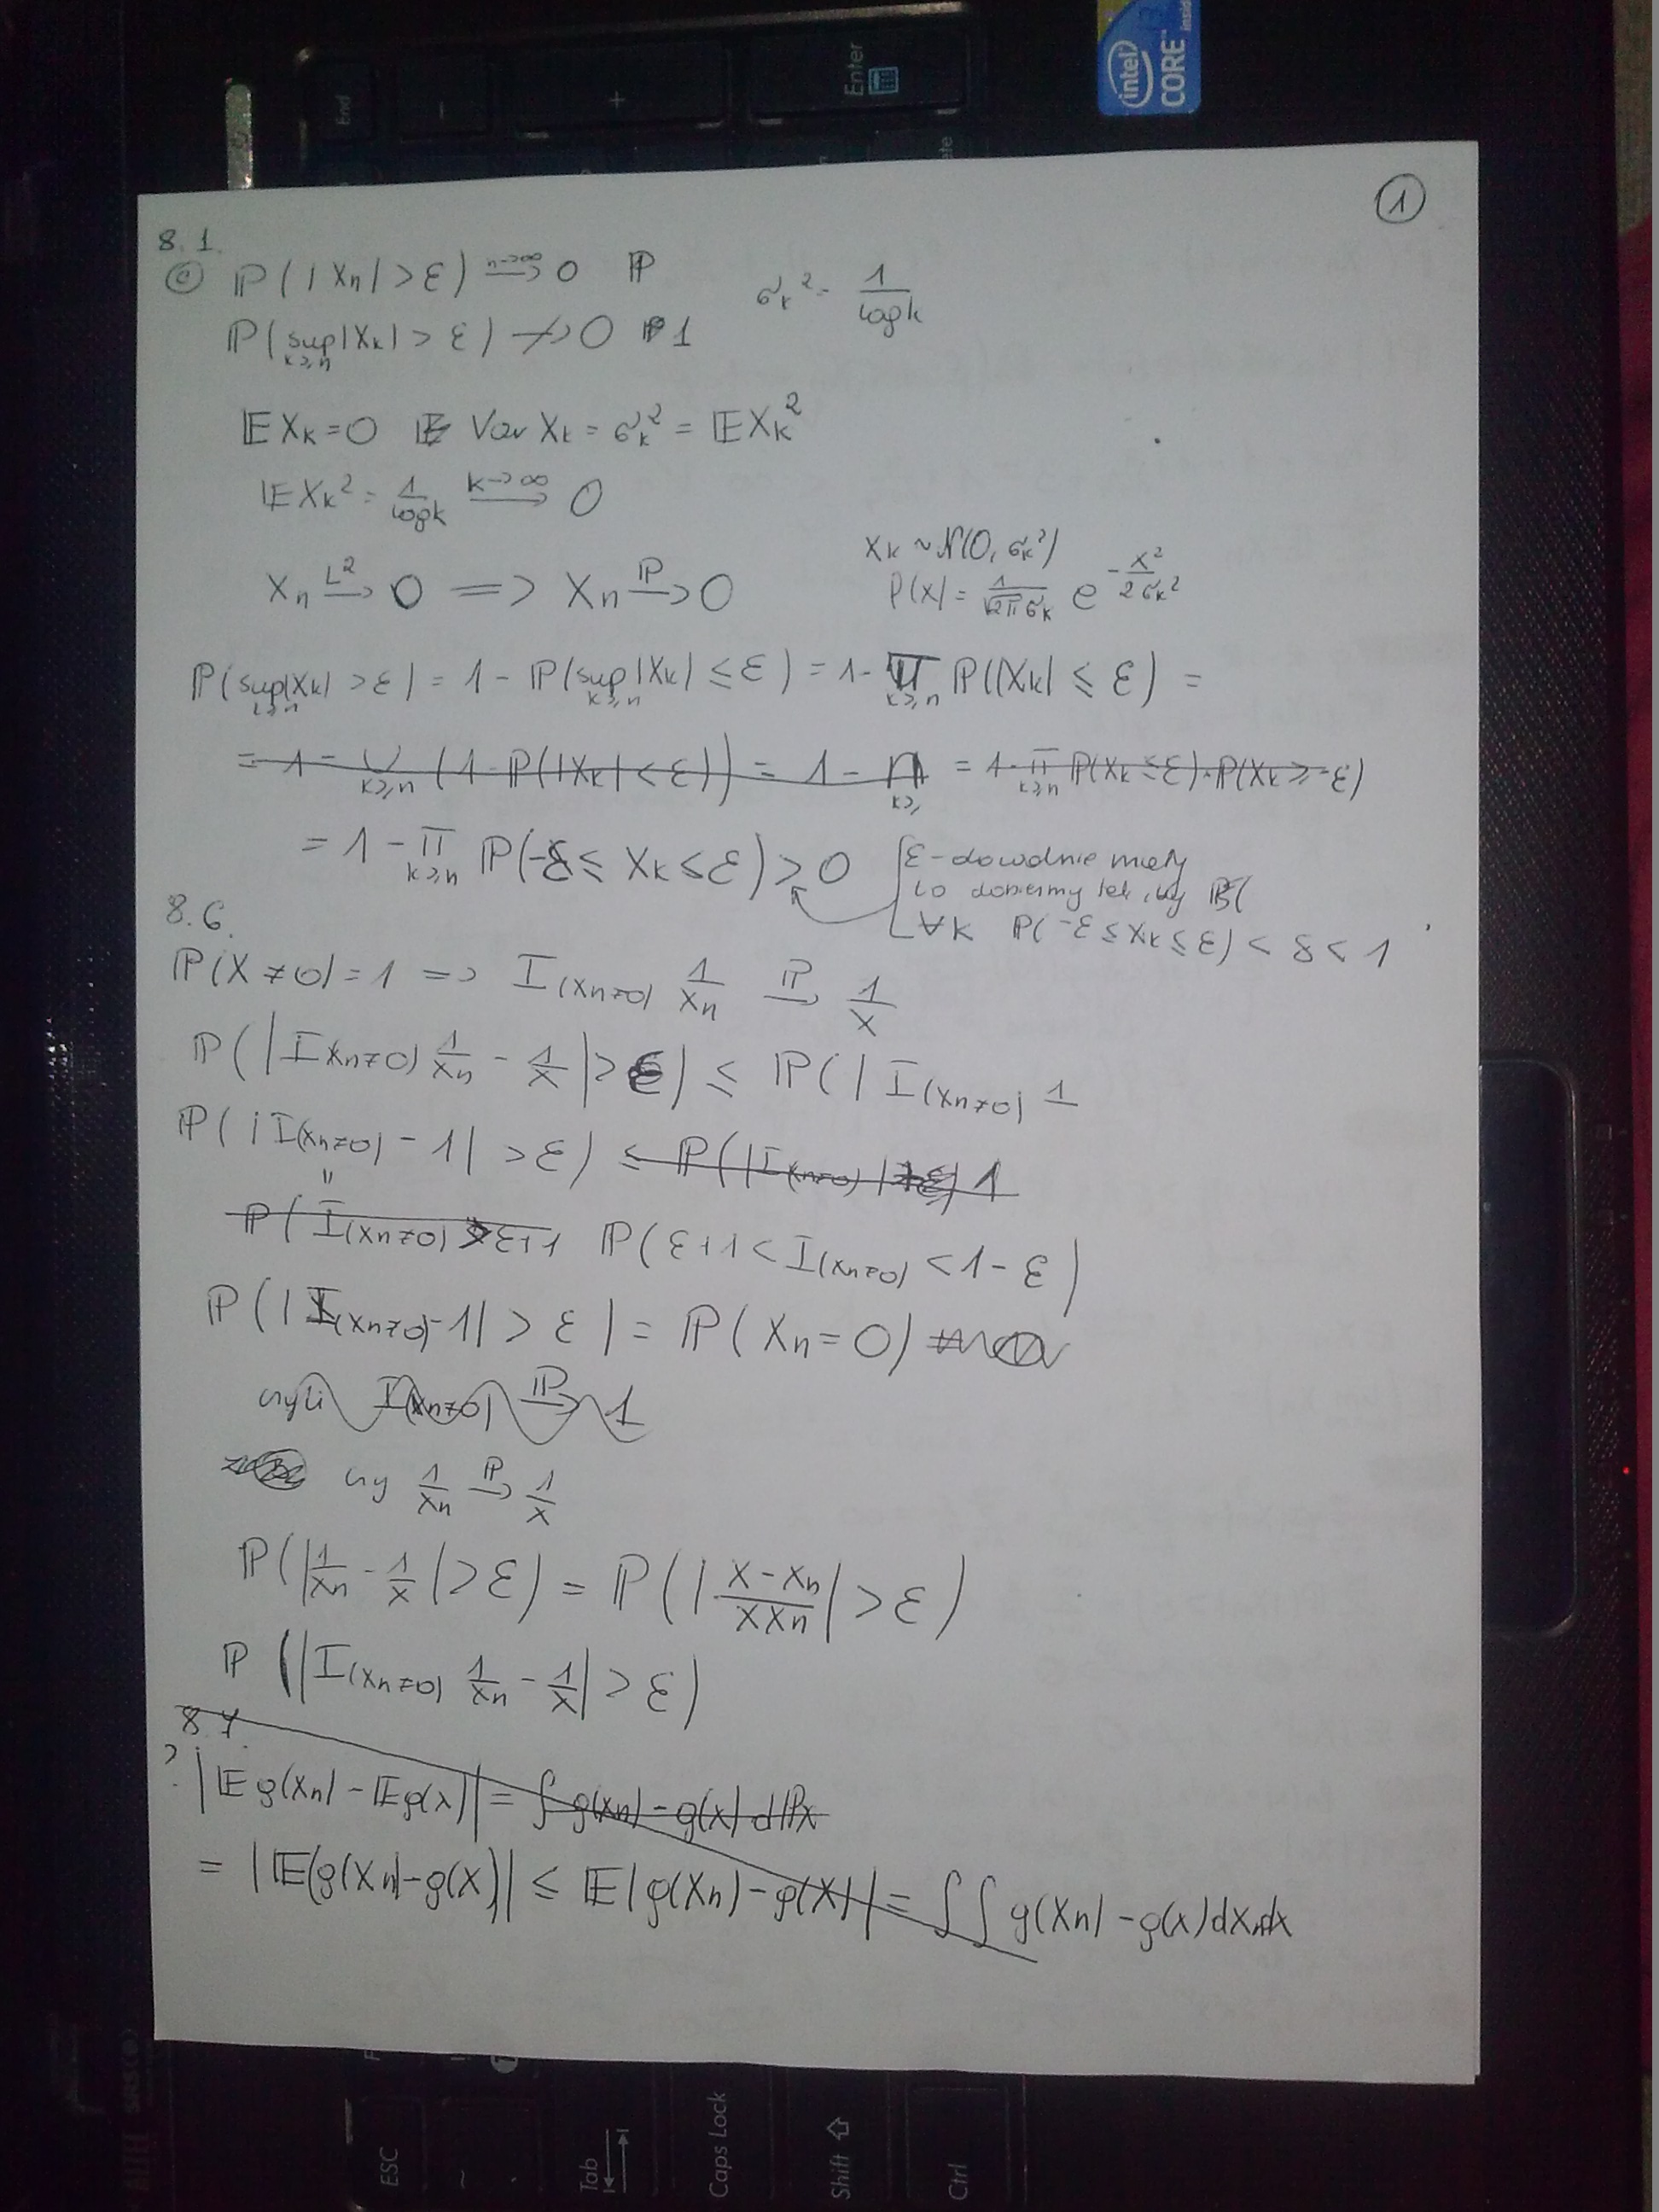 End
-
+
Enter
intel
CORE i3
inside
1
8.1.
ⓒ ℙ(|Xn| > ε) n→∞→ 0 ℙ
σk² = 1/logk
ℙ(sup k≥n |Xk| > ε) ↛ 0 1
𝔼Xk = 0 Var Xk = σk² = 𝔼Xk²
𝔼Xk² = 1/logk k→∞→ 0
Xn L²→ 0 => Xn ℙ→ 0
Xk ~ N(0, σk²)
p(x) = 1/(√2π σk) e^(-x²/2σk²)
ℙ(sup k≥n |Xk| > ε) = 1 - ℙ(sup k≥n |Xk| ≤ ε) = 1 - Π k≥n ℙ(|Xk| ≤ ε) =
= 1 - ∪ k≥n (1 - ℙ(|Xk| < ε)) = 1 - ∩ k≥ = 1 - Π k≥n ℙ(Xk ≤ ε) · ℙ(Xk ≥ -ε)
= 1 - Π k≥n ℙ(-ε ≤ Xk ≤ ε) > 0
ε - dowolnie mały
to dobierzmy tak, by
∀k ℙ(-ε ≤ Xk ≤ ε) < δ < 1
8.6.
ℙ(X ≠ 0) = 1 => I(Xn≠0) 1/Xn ℙ→ 1/X
ℙ(|I(Xn≠0) 1/Xn - 1/X| > ε) ≤ ℙ(| I(Xn≠0) 1
ℙ(|I(Xn≠0) - 1| > ε) ≤ ℙ(|I(Xn≠0)| > ε) 1
ℙ(I(Xn≠0) > ε+1 ℙ(ε+1 < I(Xn≠0) < 1-ε)
ℙ(|I(Xn≠0) - 1| > ε) = ℙ(Xn = 0)
czyli I(Xn≠0) ℙ→ 1
czy 1/Xn ℙ→ 1/X
ℙ(|1/Xn - 1/X| > ε) = ℙ(|(X - Xn)/(X Xn)| > ε)
ℙ (|I(Xn≠0) 1/Xn - 1/X| > ε)
8.7.
? |𝔼g(Xn) - 𝔼g(X)| = ∫ g(Xn) - g(x) dℙx
= |𝔼(g(Xn) - g(X))| ≤ 𝔼|g(Xn) - g(X)| = ∫∫ g(Xn) - g(x) dXn dx
ESC
~
Tab
Caps Lock
Shift
Ctrl